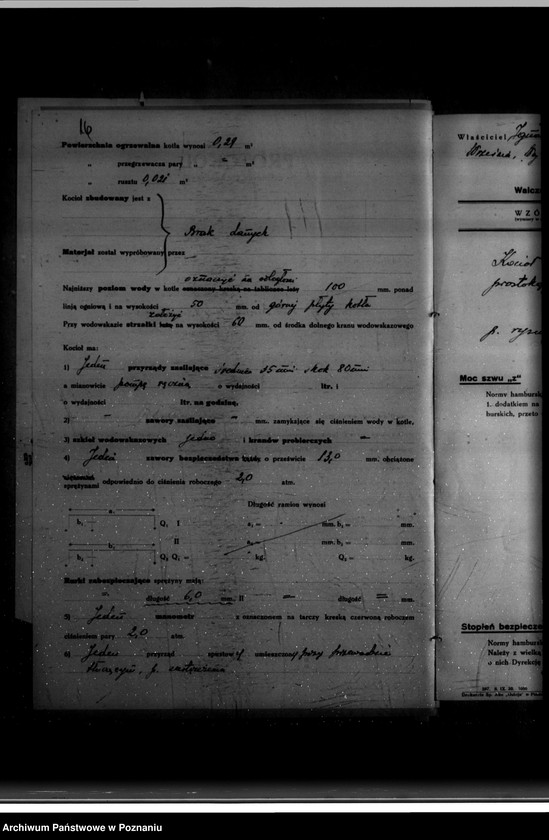 16
Powierzchnia ogrzewalna kotła wynosi 0,29 m²
„ przegrzewacza pary „ - m²
„ rusztu 0,021 m²
Kocioł zbudowany jest z
Brak danych
Materjał został wypróbowany przez
oznaczyć na odległości
Najniższy poziom wody w kotle oznaczony kreską na tabliczce leży 100 mm. ponad
linją ogniową i na wysokości 50 mm. od górnej płyty kotła
założyć
Przy wodowskazie strzałki leżą na wysokości 60 mm. od środka dolnego kranu wodowskazowego
Kocioł ma:
1) Jeden przyrządy zasilające średnica 35 mm skok 80 mm
a mianowicie pompę ręczną o wydajności ltr. i
o wydajności ltr. na godzinę,
2) - zawory zasilające - mm. zamykające się ciśnieniem wody w kotle,
3) szkieł wodowskazowych jedno i kranów probierczych -
4) Jeden zawory bezpieczeństwa będą o prześwicie 13,0 mm. obciążone
sprężynami odpowiednio do ciśnienia roboczego 2,0 atm.
Długość ramion wynosi
a. Q₁ I a₁ = mm. b₁ = mm.
b₁
II a₂ = mm. b₂ = mm.
b₂ Q₂ Q₁ = kg. Q₂ = kg.
Rurki zabezpieczające sprężyny mają:
długość 6,0 mm. II - długość = mm.
5) Jeden manometr z oznaczonem na tarczy kreską czerwoną roboczem
ciśnieniem pary 2,0 atm.
6) Jeden przyrząd spustowy umieszczony przy przewodzie
Właściciel
Września,
Walcz
WZÓ
Kocioł
prostok
p. rysu
Moc szwu „z”
Normy hamburski
1. dodatkiem na
burskich, przeto
Stopień bezpiecze
Normy hamburski
Należy z wielką
o nich Dyrekcję
Archiwum Państwowe w Poznaniu